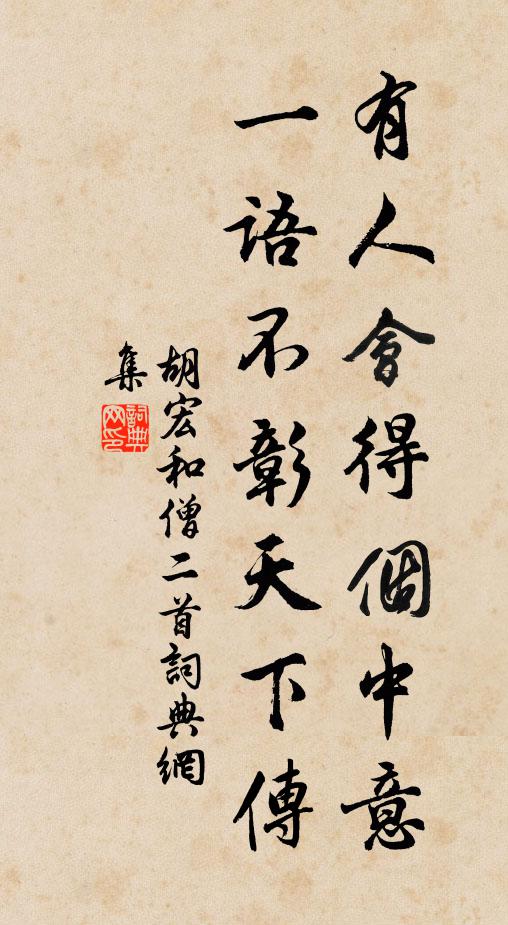 有人會得個中意
一語不彰天下傳
胡宏和僧二首詞典網
集
詞典
网印